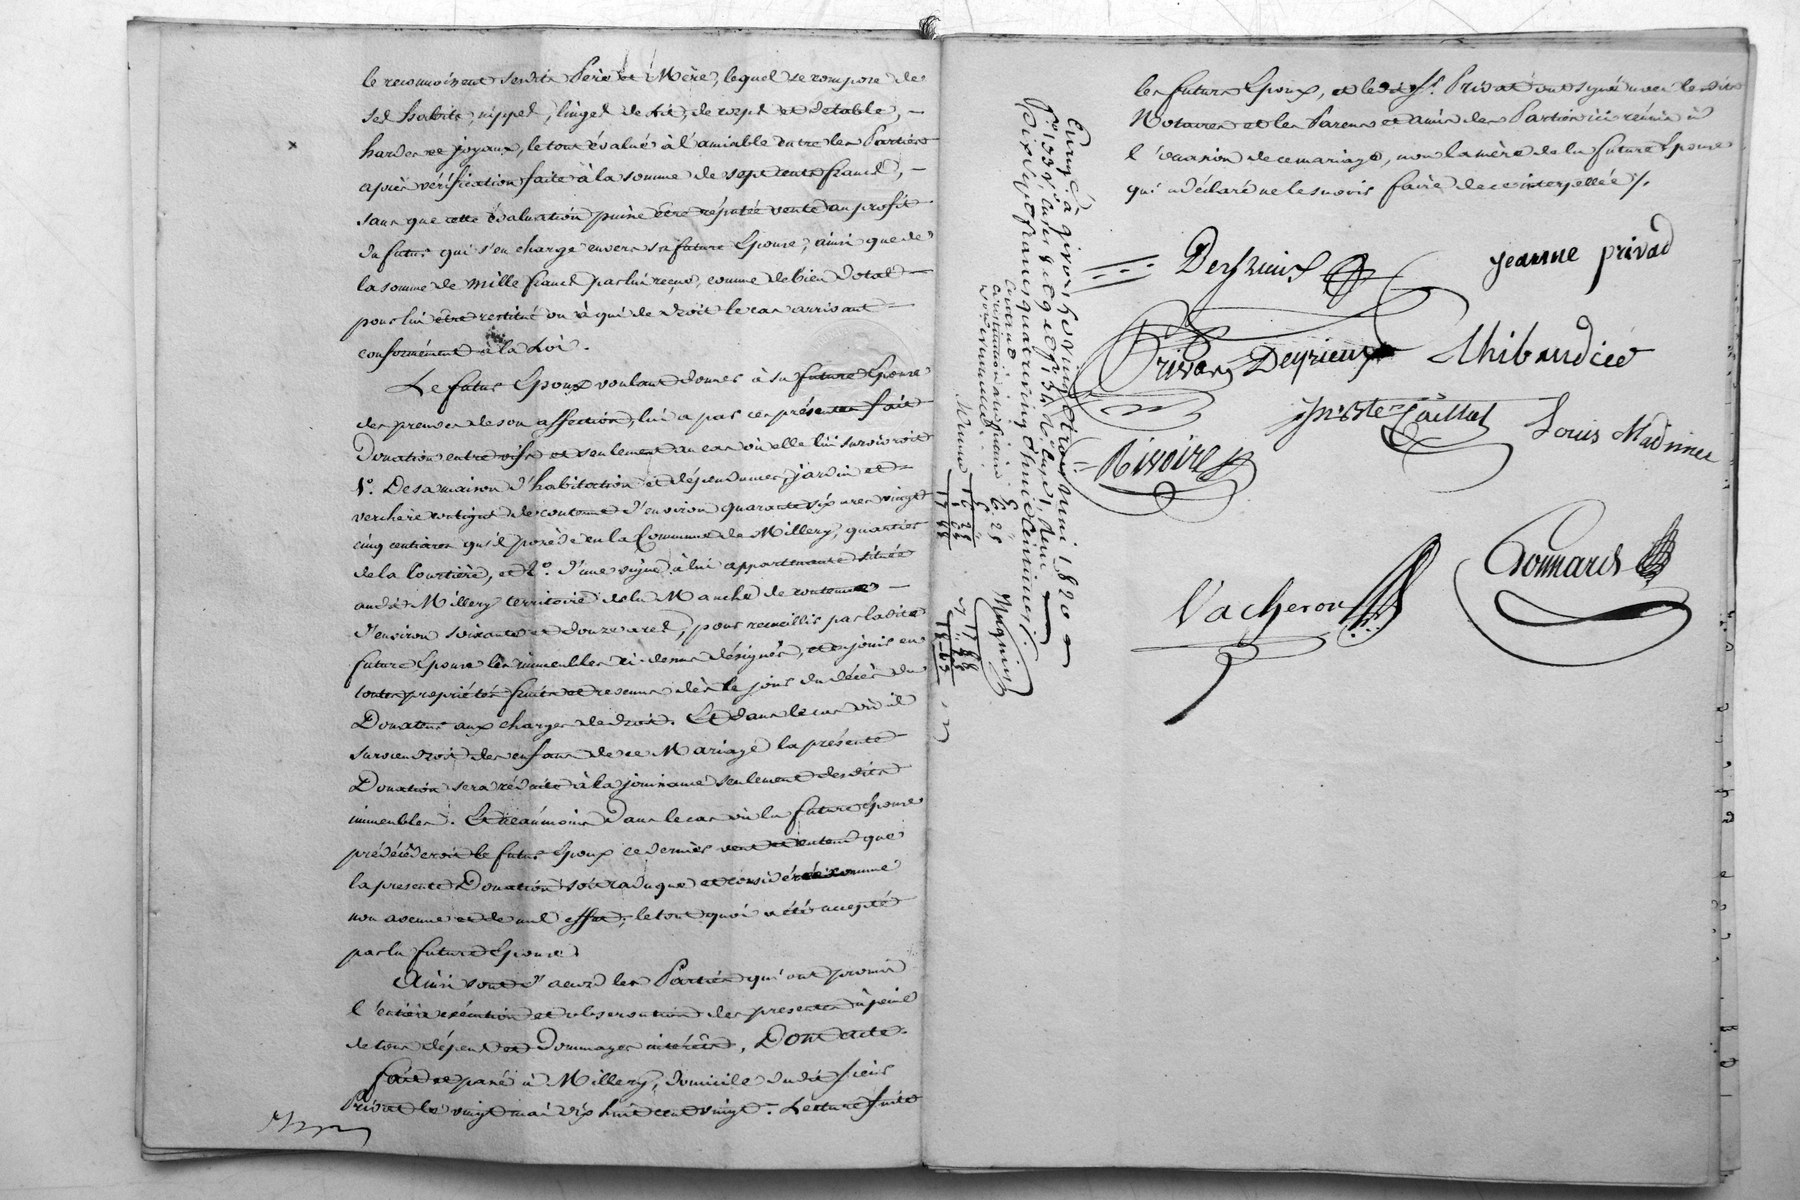 le reconnoissent sesdits Père et Mère, lequel se compose de
ses habits, nippes, linges de lit, de corps et de table,
hardes et joyaux, le tout évalué à l'amiable entre les Parties
après vérification faite à la somme de sept cents francs,
sans que cette évaluation puisse être réputée vente au profit
du futur qui s'en charge envers sa future Epouse, ainsi que de
la somme de mille francs par lui reçue, comme de bien dotal
pour lui être restitué ou à qui de droit le cas arrivant
conformément à la Loi.
Le futur Epoux voulant donner à sa future Epouse
des preuves de son affection, lui a par ces présentes fait
Donation entre vifs et seulement au cas où elle lui survivroit
1º. De sa maison d'habitation et dépendances, jardin et
verchère contigus de contenue d'environ quarante six ares vingt
cinq centiares qu'il possède en la Commune de Millery, quartier
de la Fourtière, et 2º. d'une vigne à lui appartenante située
audit Millery territoire de la Manche de contenue
d'environ soixante et douze ares, pour recueillir par ladite
future Epouse les immeubles ci-dessus désignés, et en jouir en
toutes propriétés fruits et revenus dès le jour du décès du
Donateur aux charges de droit. Et dans le cas où il
surviendroit des enfans de ce Mariage la présente
Donation sera réduite à la jouissance seulement desdits
immeubles. Et néaumoins dans le cas où la future Epouse
prédécéderoit le futur Epoux ce dernier veut et entend que
la présente Donation soit caduque et considérée comme
non avenue et de nul effet, le tout quoi a été accepté
par la future Epouse.
Ainsi sont d'accord les Parties qui ont promis
l'entière exécution et observation des présentes à peine
de tous dépens et dommages intérêts. Dont acte.
fait et passé à Millery, domicile dudit sieur
Privat le vingt mai dix huit cent vingt. Lecture faite
les futurs Epoux, et ledit Sr. Privat ont signé avec lesdits
Notaires et les Parens et amis des Parties ici réunis à
l'occasion de ce mariage, non la mère de la future Epouse
qui a déclaré ne le savoir faire de ce interpellée /.
Enregé. à givors le vingt trois mai 1820
dix sept francs quatre vingt huit centimes
Mugnier
Deyrieux
jeanne privad
Privas Deyrieux
Thibaudier
Caillat
Louis Madinier
Rivoire
Vacheron
Connard